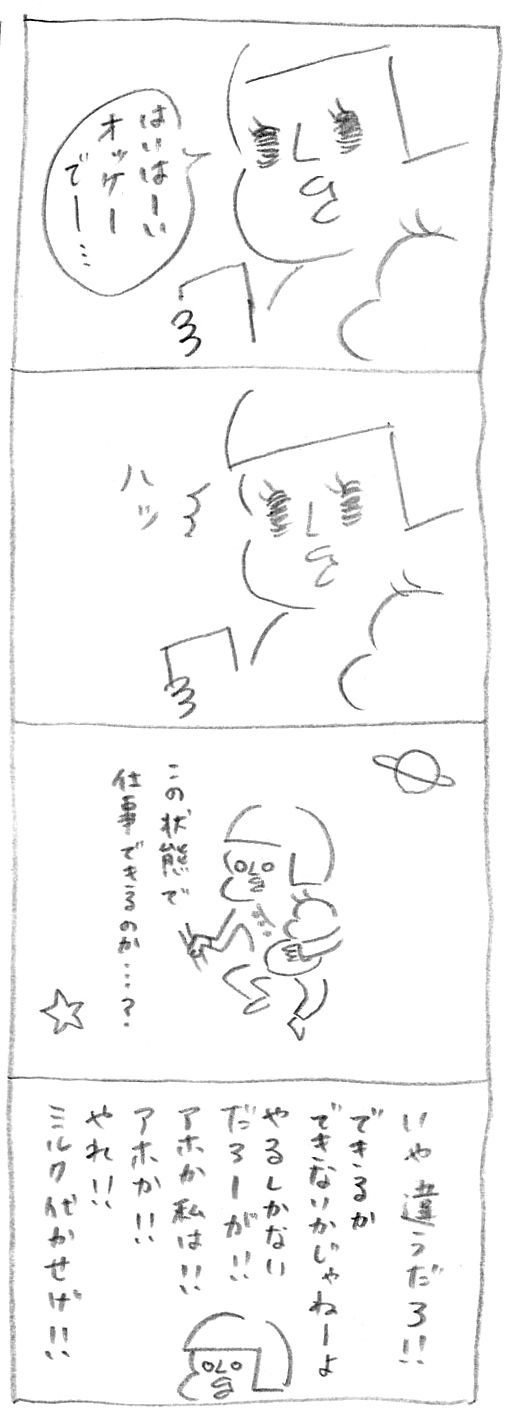 はいはーい
オッケー
でーー…
ハッ
この状態で
仕事できるのか…?
いや違うだろ!!
できるか
できないかじゃねーよ
やるしかない
だろーが!!
アホか私は!!
アホか!!
やれ!!
ミルク代かせげ!!